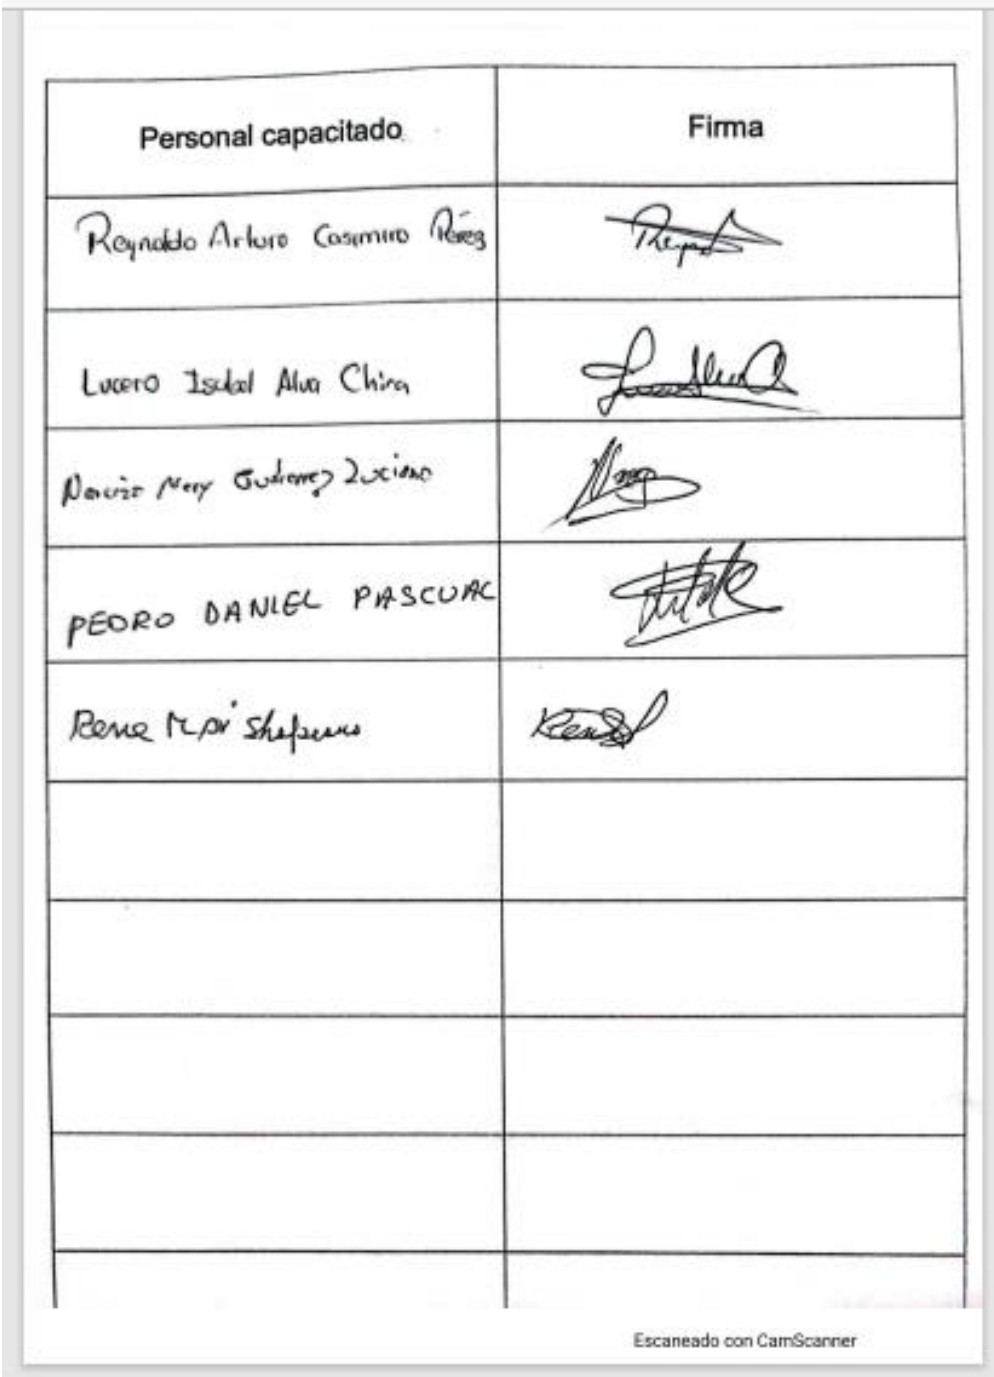 Personal capacitado Firma
Reynaldo Arturo Casimiro Pérez
Lucero Isabel Alva Chira
Nery Gutierrez Luciano
PEDRO DANIEL PASCUAL
Rene
Escaneado con CamScanner